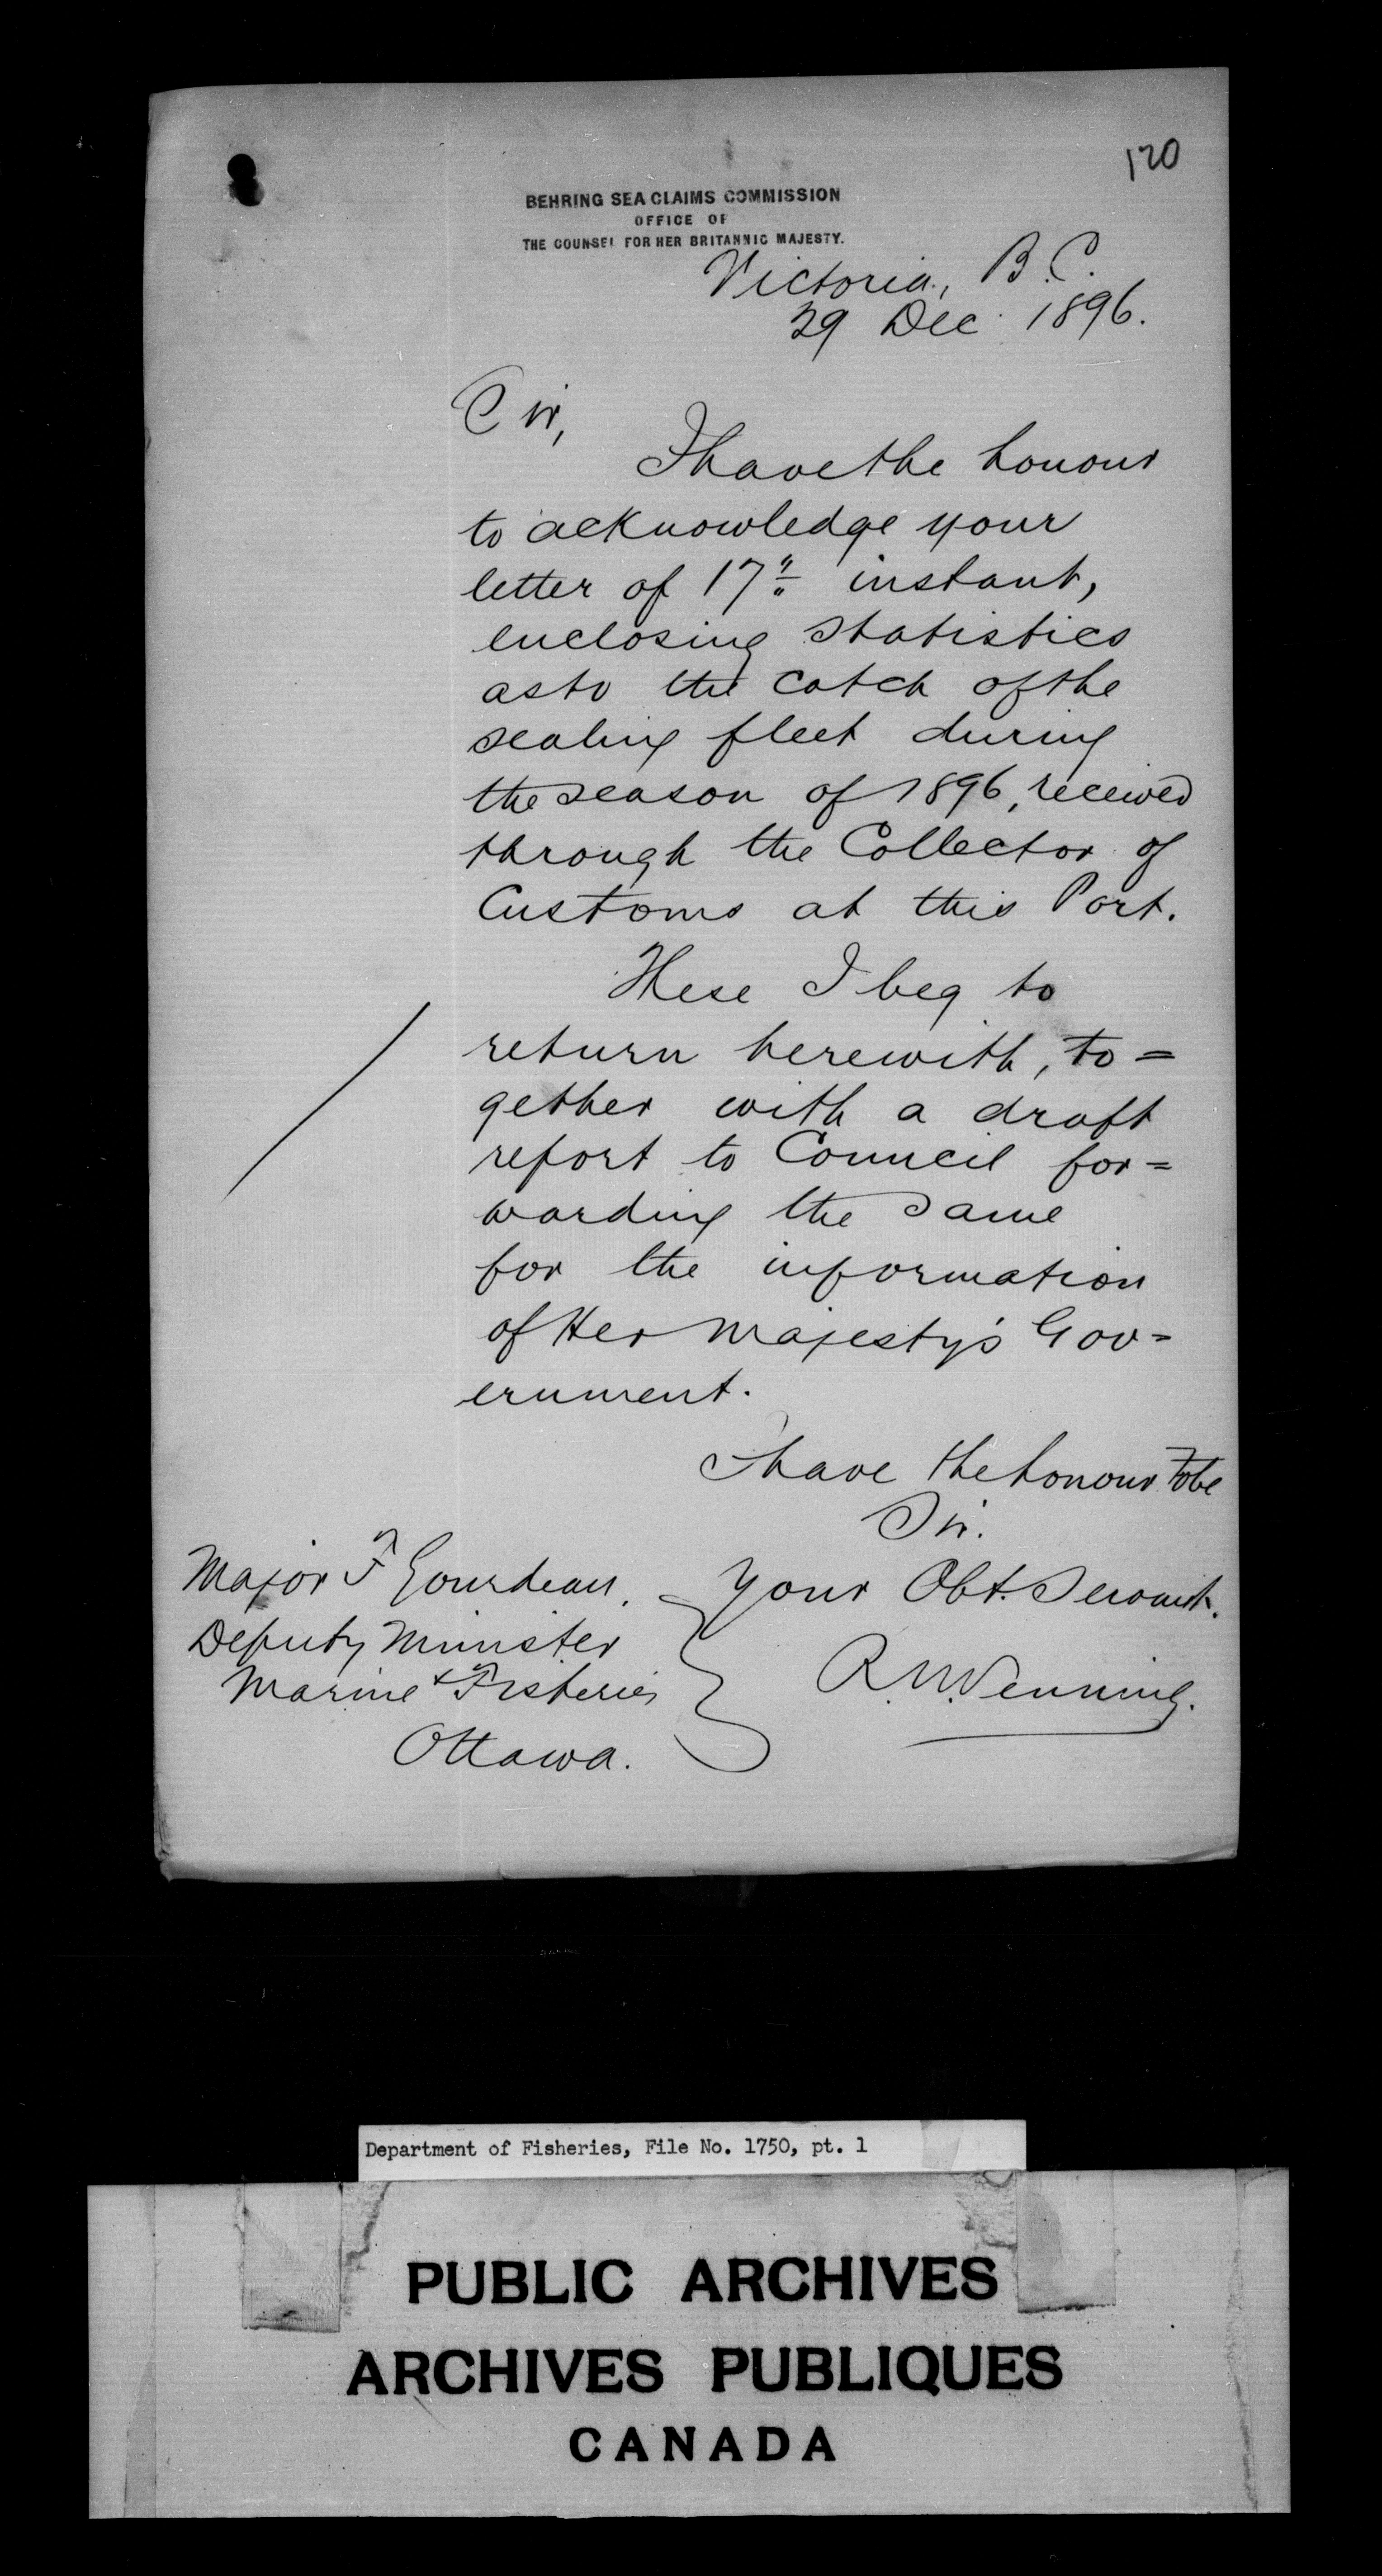 120
BEHRING SEA CLAIMS COMMISSION
OFFICE OF
THE COUNSEL FOR HER BRITANNIC MAJESTY.
Victoria, B.C.
29 Dec. 1896.
Sir,
I have the honour
to acknowledge your
letter of 17" instant,
enclosing statistics
as to the catch of the
sealing fleet during
the season of 1896, received
through the Collector of
Customs at this Port.
These I beg to
return herewith, to=
gether with a draft
report to Council for=
warding the same
for the information
of Her Majesty's Gov=
ernment.
I have the honour to be
Sir.
Your Obt. Servant.
R.N. Venning.
Major F Gourdeau,
Deputy Minister
Marine & Fisheries
Ottawa.
Department of Fisheries, File No. 1750, pt. 1
PUBLIC ARCHIVES
ARCHIVES PUBLIQUES
CANADA